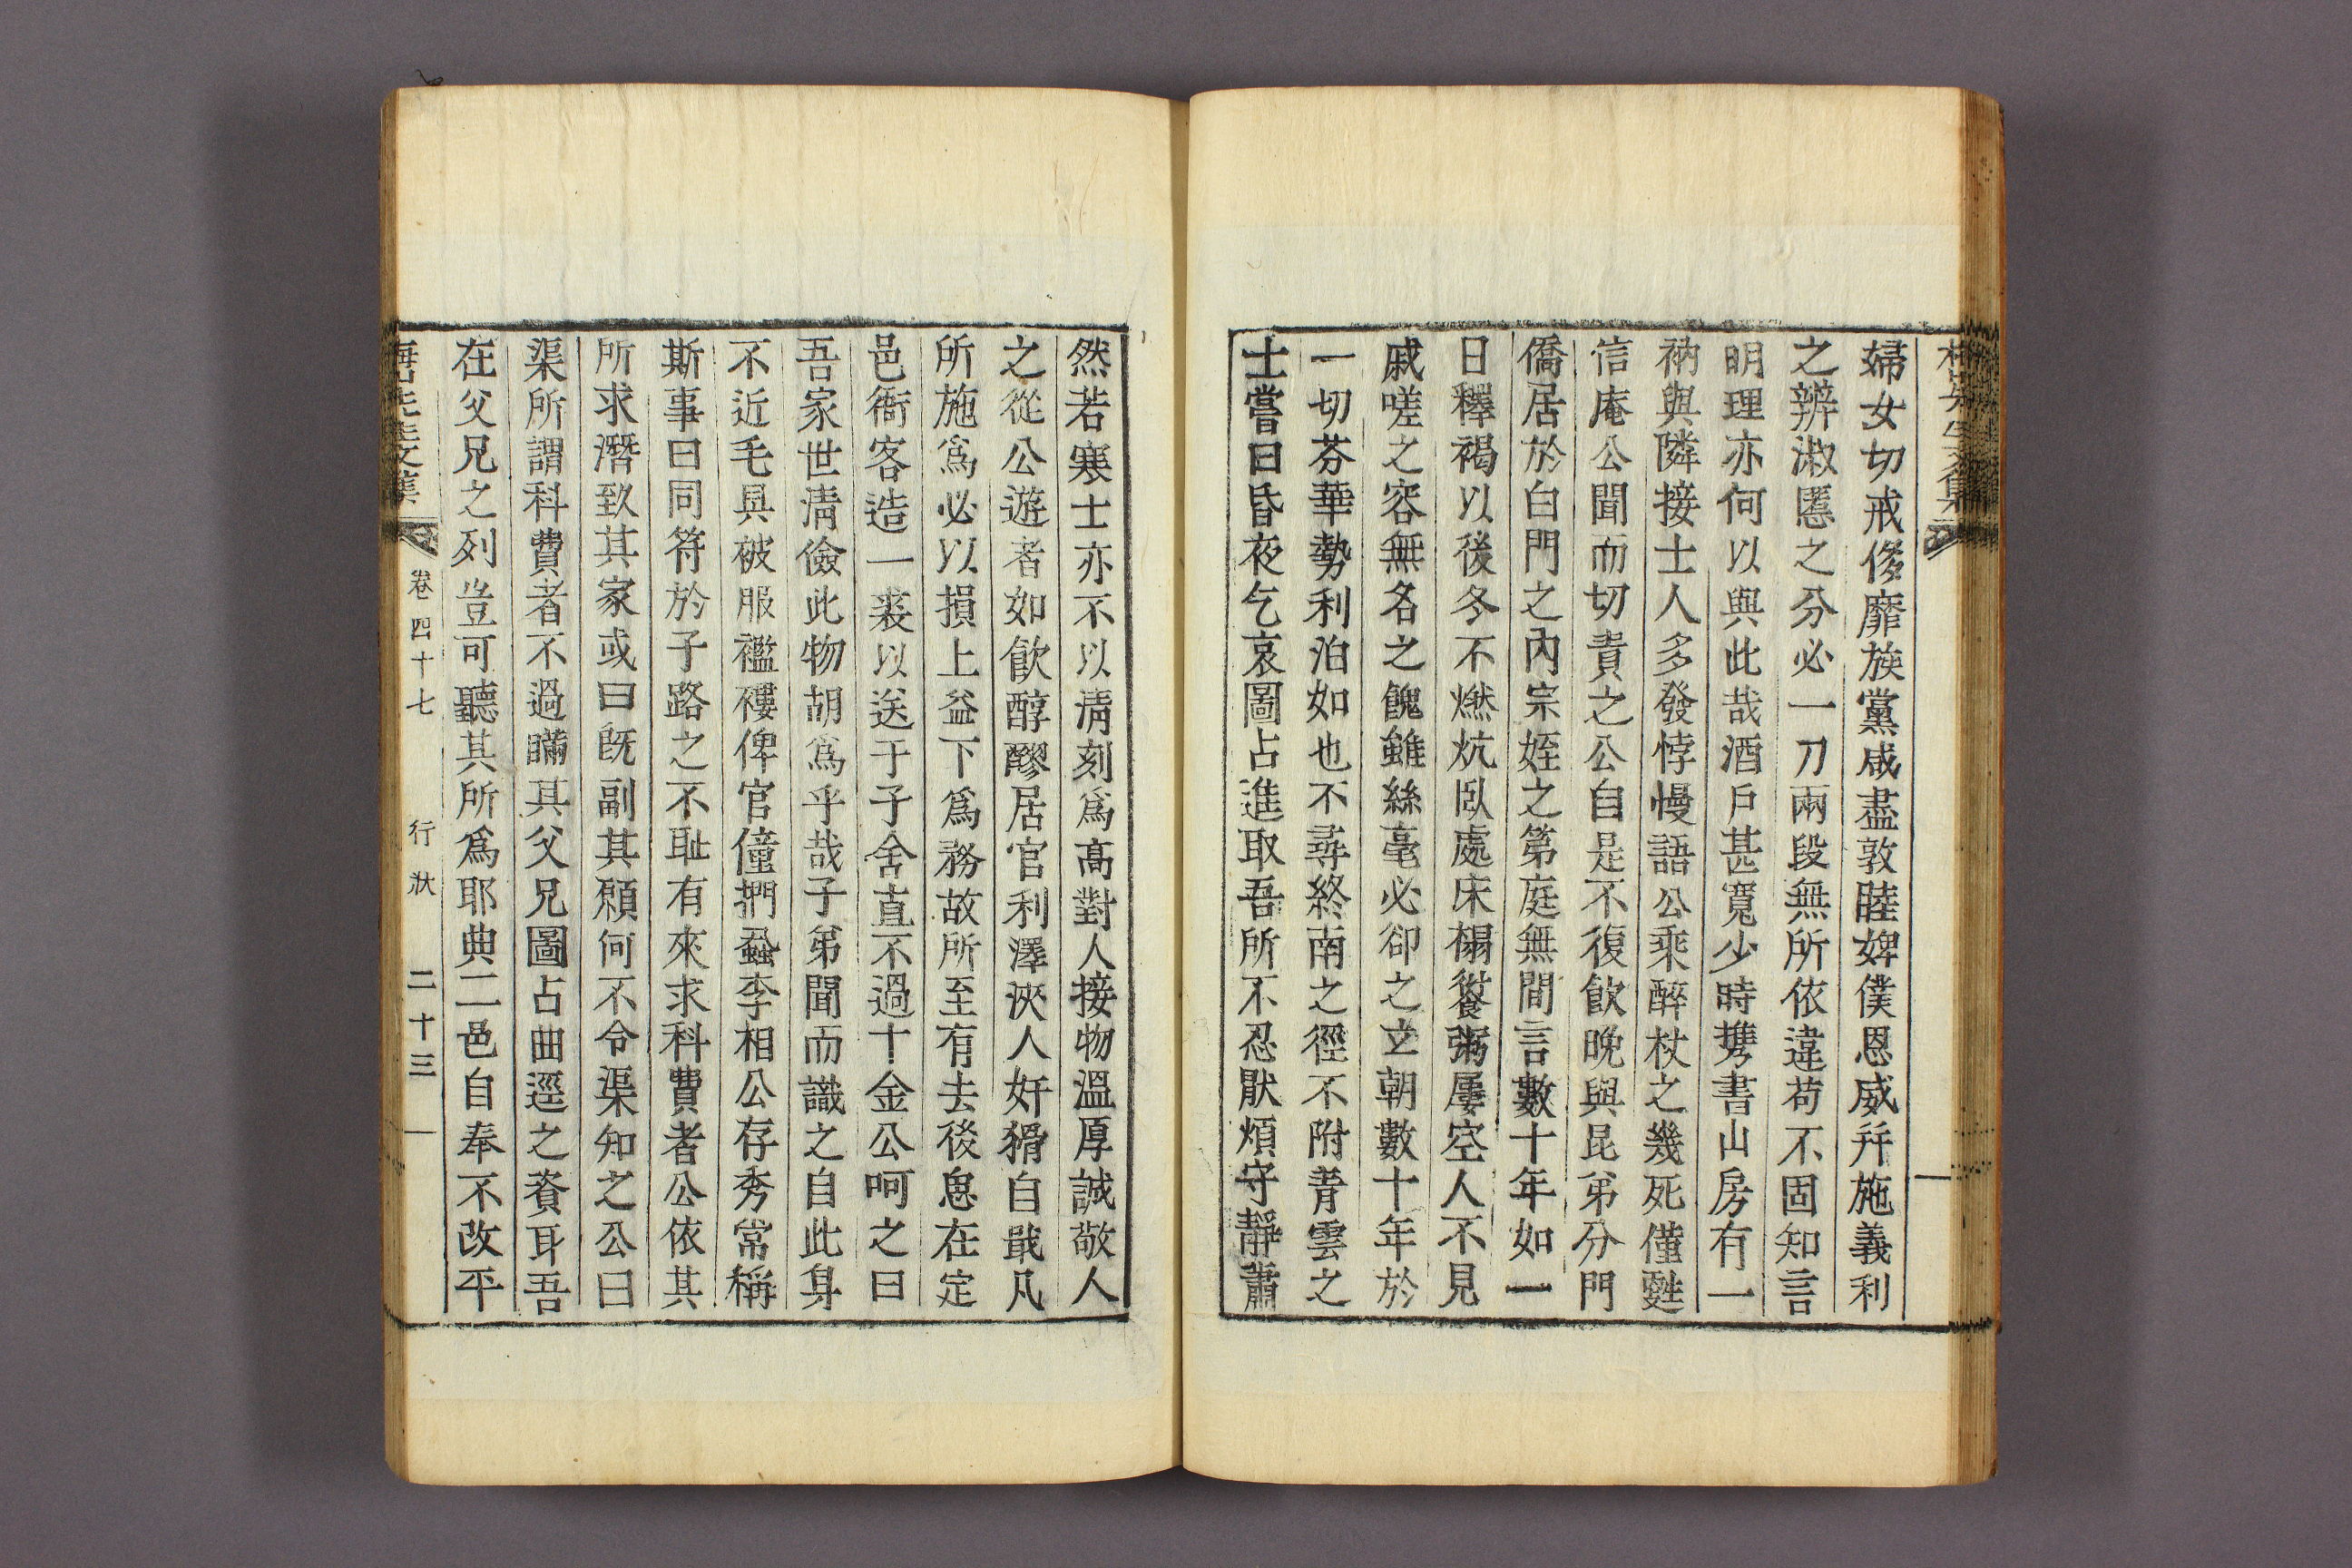 婦女切戒侈靡族黨咸盡敦睦婢僕恩威幷施義利
之辨淑慝之分必一刀兩段無所依違苟不固知言
明理亦何以與此哉酒戶甚寬少時擕書山房有一
衲與隣接士人多發悖慢語公乘醉杖之幾死僅甦
信庵公聞而切責之公自是不復飮晩與昆弟分門
僑居於白門之內宗姪之第庭無間言數十年如一
日釋褐以後冬不燃炕臥處床榻饘粥屢空人不見
戚嗟之容無名之餽雖絲毫必卻之立朝數十年於
一切芬華勢利泊如也不尋終南之徑不附靑雲之
士嘗曰昏夜乞哀圖占進取吾所不忍猒煩守靜蕭
然若寒士亦不以淸刻爲高對人接物溫厚誠敬人
之從公遊者如飮醇醪居官利澤浹人奸猾自戢凡
所施爲必以損上益下爲務故所至有去後思在定
邑衙客造一裘以送于子舍直不過十金公呵之曰
吾家世淸儉此物胡爲乎哉子弟聞而識之自此身
不近毛具被服襤褸俾官僮捫蝨李相公存秀常稱
斯事曰同符於子路之不耻有來求科費者公依其
所求潛致其家或曰旣副其願何不令渠知之公曰
渠所謂科費者不過瞞其父兄圖占曲逕之賚耳吾
在父兄之列豈可聽其所爲耶典二邑自奉不改平
先生文集 卷四十七 行狀 二十三